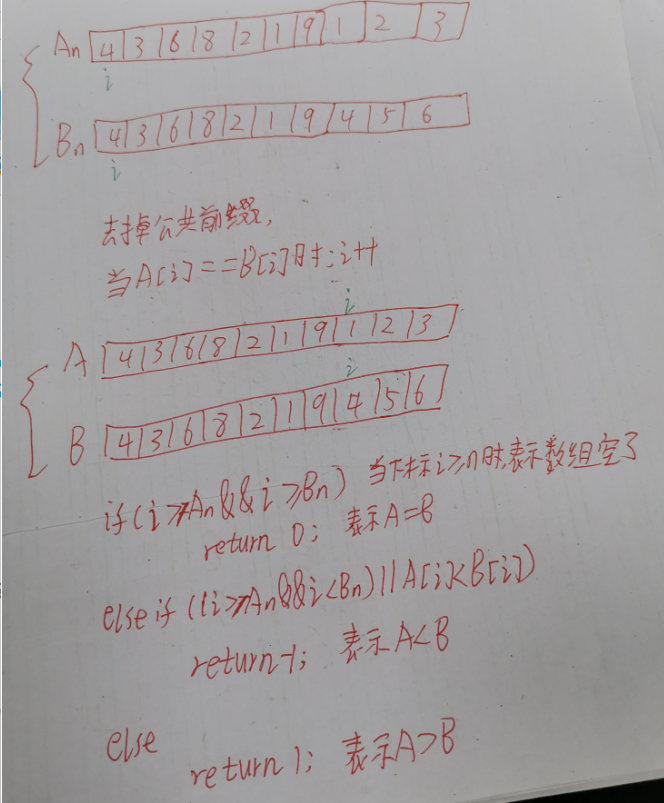 An 4 3 6 8 2 1 9 1 2 3
i
Bn 4 3 6 8 2 1 9 4 5 6
i
去掉公共前缀,
当A[i]==B[i]时:i++
i
A 4 3 6 8 2 1 9 1 2 3
i
B 4 3 6 8 2 1 9 4 5 6
if(i≥An&&i≥Bn) 当下标i≥n时,表示数组空了
return 0; 表示A=B
else if ((i≥An&&i<Bn)||A[i]<B[i])
return-1; 表示A<B
else
return 1; 表示A>B